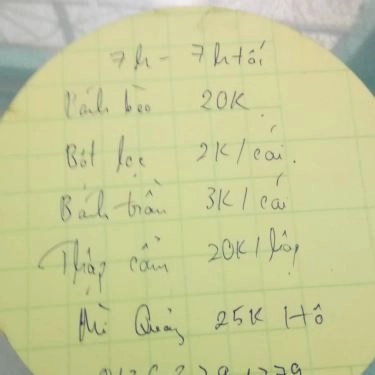 7h - 7h tối
Bánh bèo 20K
Bột lọc 2K/cái.
Bánh trần 3K/cái
Thập cẩm 20K/hộp
Mì Quảng 25K/tô